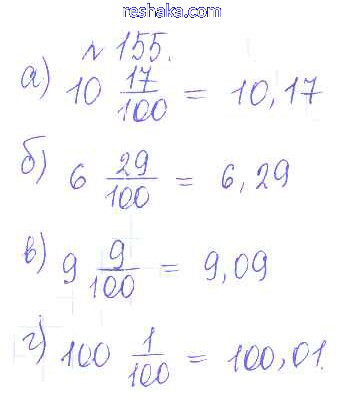 reshaka.com
№155.
а) 10 17/100 = 10,17
б) 6 29/100 = 6,29
в) 9 9/100 = 9,09
г) 100 1/100 = 100,01.